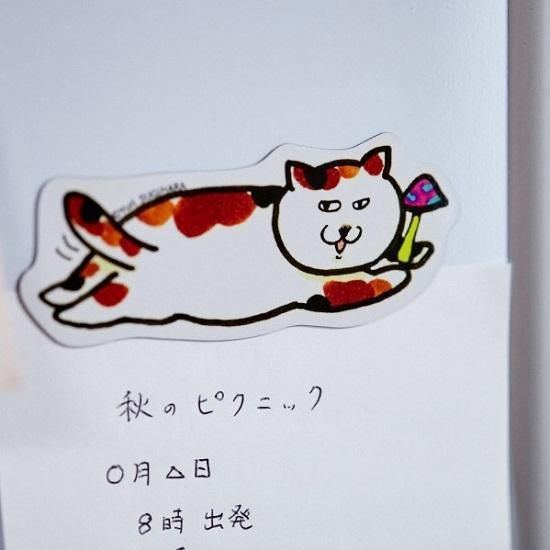 秋のピクニック
〇月△日
8時出発